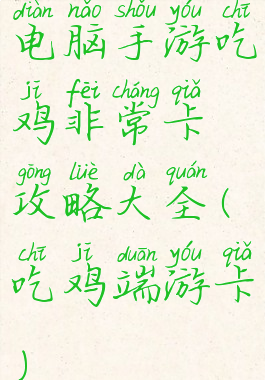 diàn nǎo shǒu yóu chī
电脑手游吃
jī fēi cháng qiǎ
鸡非常卡
gōng lüè dà quán
攻略大全(
chī jī duān yóu qiǎ
吃鸡端游卡
)